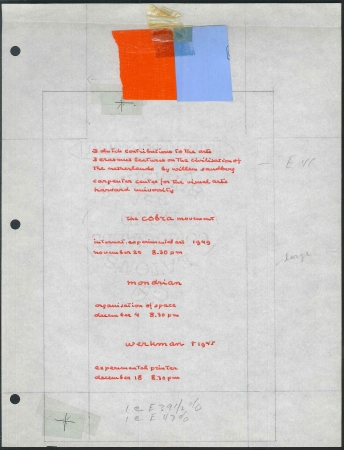 3 dutch contributions to the arts
3 erasmus lectures on the civilisation of
the netherlands by willem sandberg
carpenter center for the visual arts
harvard university
the cobra movement
internat. experimental art 1949
november 20 8.30 pm
mondrian
organisation of space
december 4 8.30 pm
werkman † 1945
experimental printer
december 18 8.30 pm
large